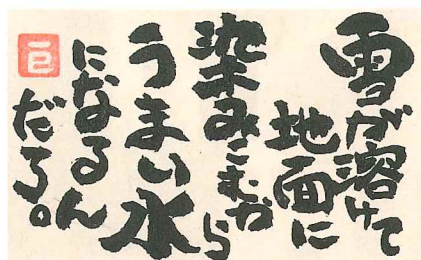 雪が溶けて
地面に
染みこむから
うまい水
になるん
だろ。